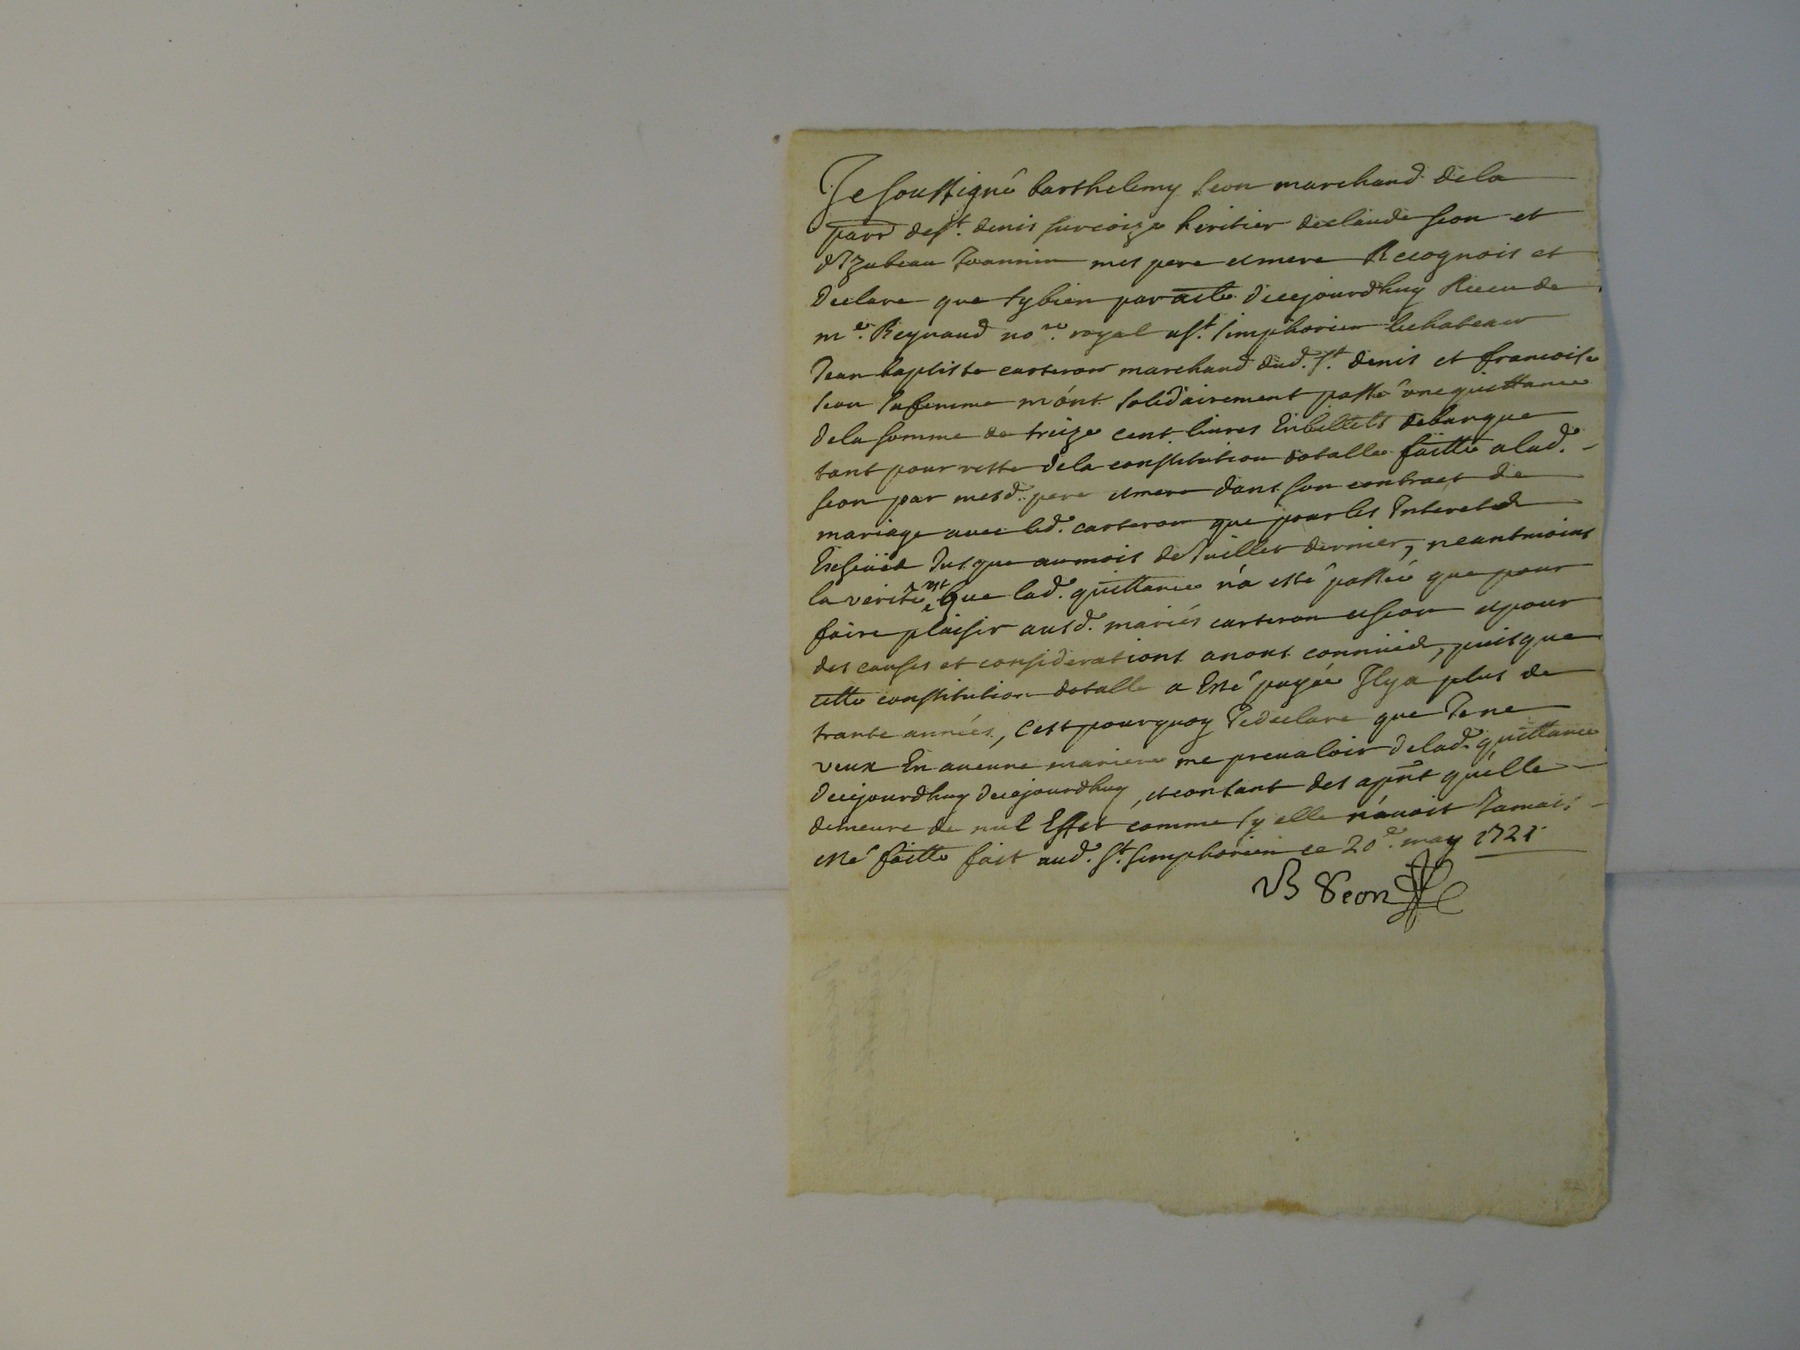 Je soussigné barthelemy seon marchand de la
parr de st. denis sur coize heritier de claude seon et
d'Izabeau Joannin mes pere et mere Recognois et
declare que sy bien par acte de cejourdhuy Receu de
me. Reynaud nore. royal a st. simphorien le chateau
Jean baptiste carteron marchand dud. st. denis et francoise
seon sa femme m'ont solidairement passé une quittance
de la somme de treize cent livres En billets de banque
tant pour reste de la constitution dotalle faitte a lad.
seon par mesd. pere et mere dans son contract de
mariage avec led. carteron que pour les Interets
Escheües Jusque au mois de Juillet dernier, neantmoins
la verité est que lad. quittance n'a esté passée que pour
faire plaisir ausd. mariés carteron et seon et pour
des causes et considerations a nous connües, puis que
cette constitution dotalle a Esté payée Il y a plus de
trante années, c'est pourquoy Je declare que Je ne
veux En aucune maniere me prevaloir de lad. quittance
de cejourdhuy de cejourdhuy, et consant des apnt qu'elle
demeure de nul Effet comme sy elle n'avoit Jamais
esté faitte fait aud. st. simphorien ce 20e. may 1721
B Seon